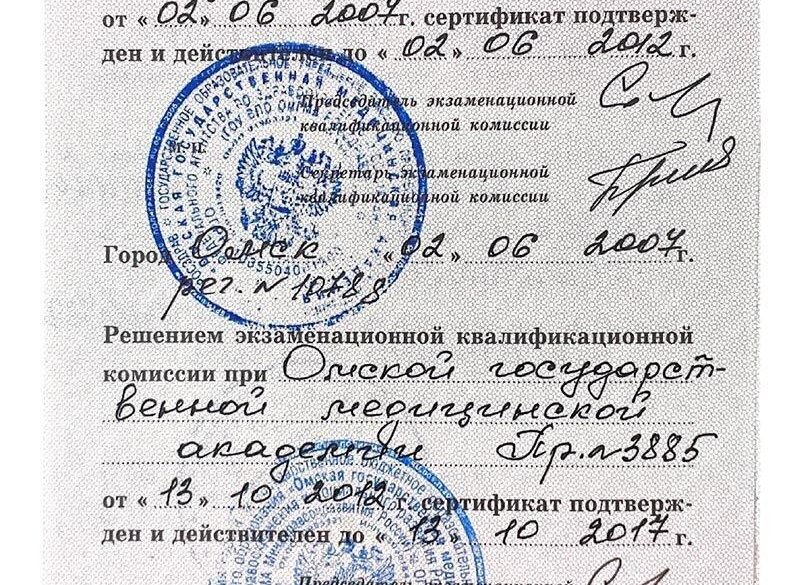 от « 02 » 06 2007 г. сертификат подтверж-
ден и действителен до « 02 » 06 2012 г.
Председатель экзаменационной
квалификационной комиссии
м.п.
Секретарь экзаменационной
квалификационной комиссии
Город Омск « 02 » 06 2007 г.
рег. №
Решением экзаменационной квалификационной
комиссии при Омской государст-
венной медицинской
академии Пр. № 3885
от « 13 » 10 2012 г. сертификат подтверж-
ден и действителен до « 13 » 10 2017 г.
Председатель экзаменационной